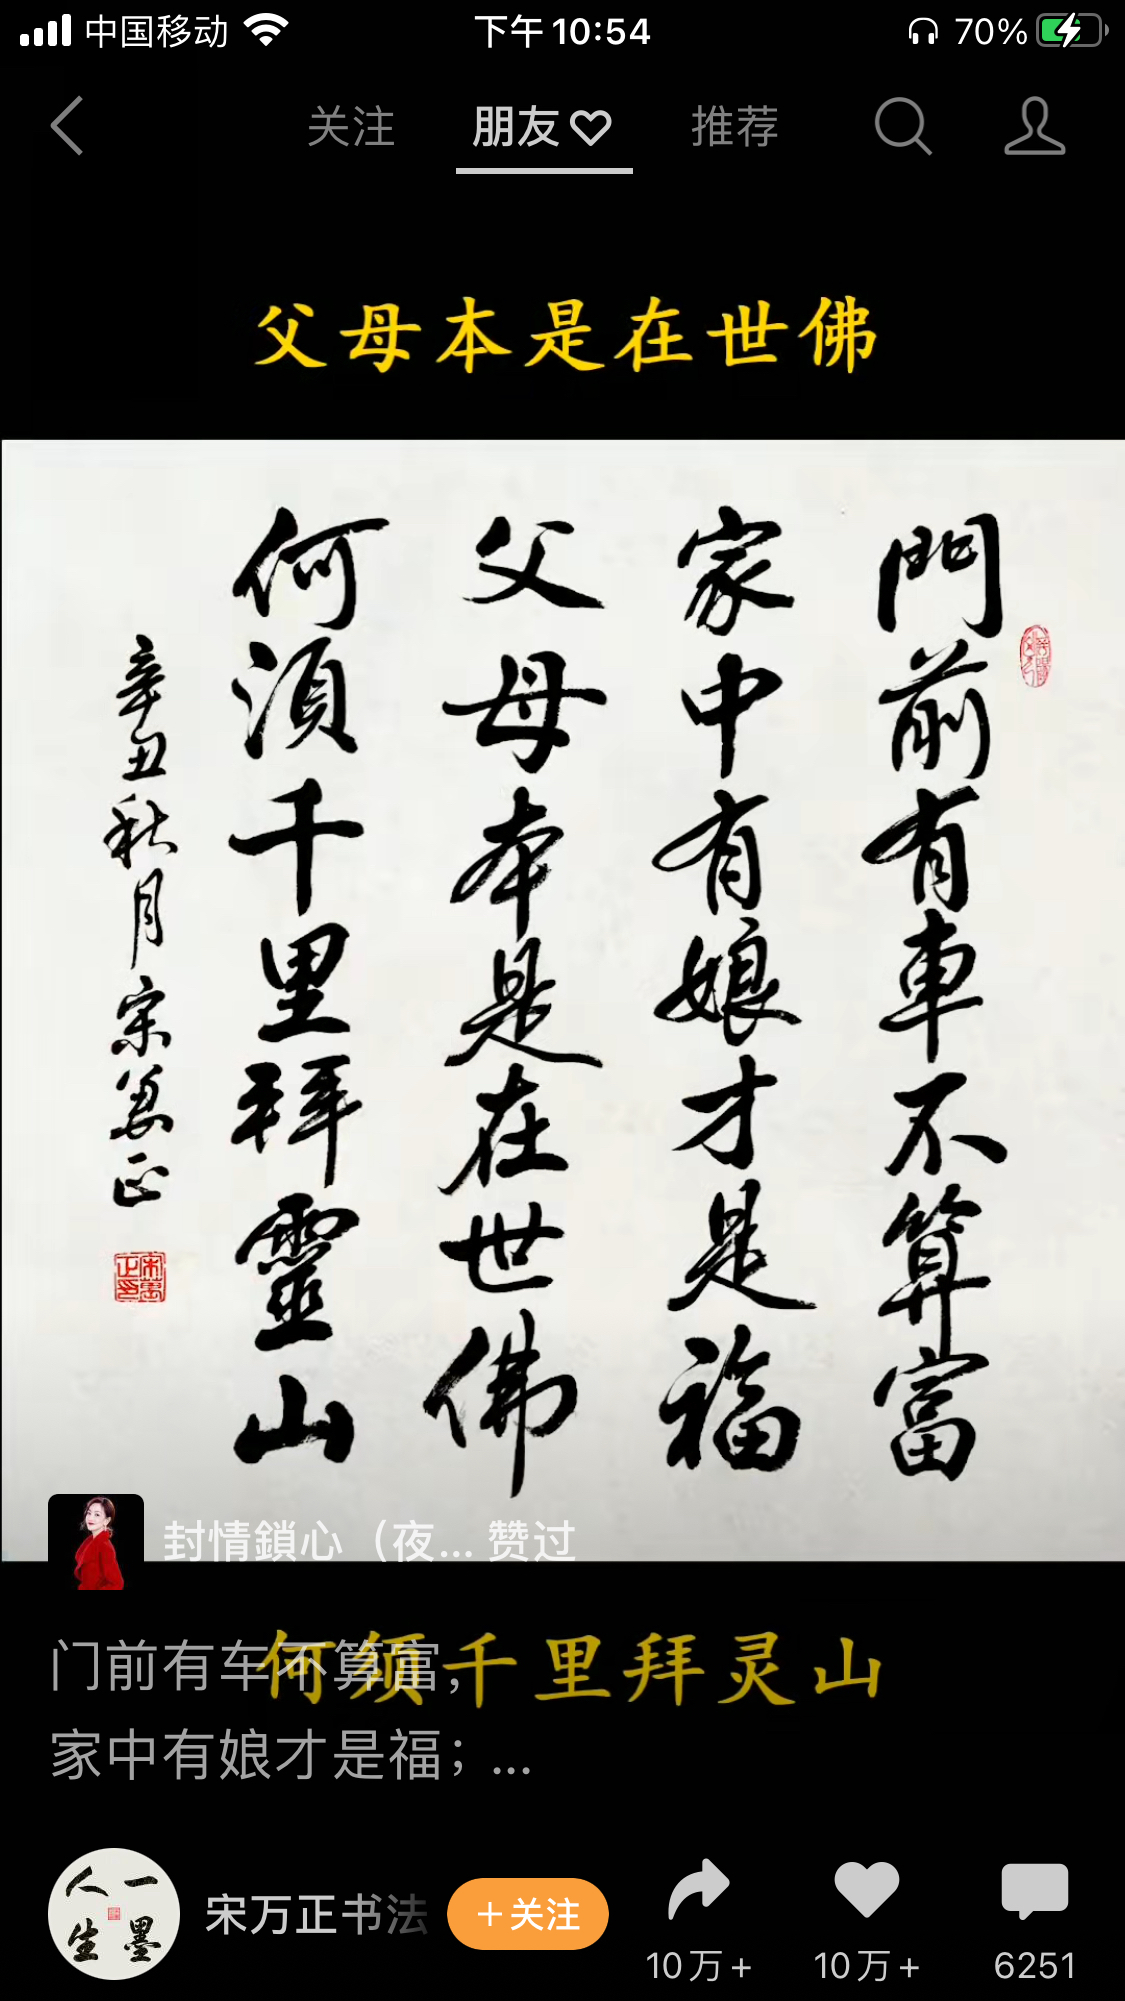 中国移动 下午10:54 70%
关注 朋友 推荐
父母本是在世佛
門前有車不算富
家中有娘才是福
父母本是在世佛
何須千里拜靈山
辛丑秋月宋萬正
封情鎖心（夜... 赞过
何须千里拜灵山
门前有车不算富，
家中有娘才是福；...
人一生墨
宋万正书法
+关注
10万+ 10万+ 6251